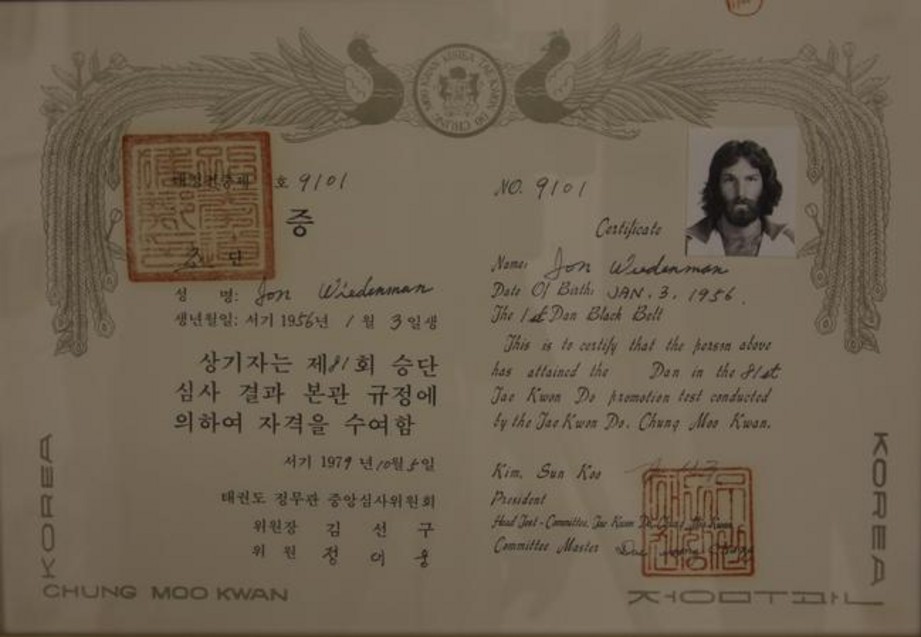 호 9101
증
초 단
성 명: Jon Wiedenman
생년월일: 서기 1956년 1월 3일생
상기자는 제81회 승단
심사 결과 본관 규정에
의하여 자격을 수여함
서기 1979년 10월 5일
태권도 정무관 중앙심사위원회
위원장 김 선 구
위 원 정 대 웅
NO. 9101
Certificate
Name: Jon Wiedenman
Date Of Birth: JAN. 3. 1956.
The 1st Dan Black Belt
This is to certify that the person above
has attained the Dan in the 81st
Tae Kwon Do promotion test conducted
by the Tae Kwon Do. Chung Moo Kwan.
Kim, Sun Koo
President
Head Test-Committee, Tae Kwon Do Chung Moo Kwan
Committee Master
KOREA
KOREA
CHUNG MOO KWAN